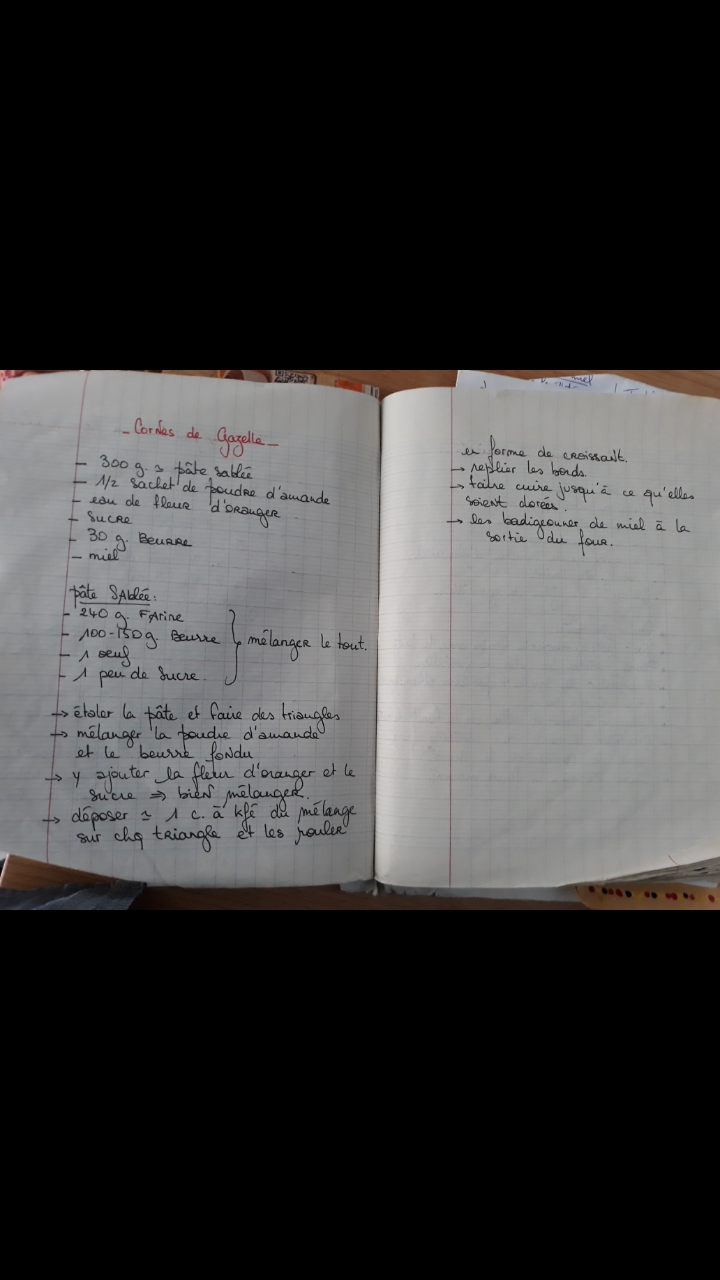 - Cornes de Gazelle -
- 300 g. ≃ pâte sablée
- 1/2 sachet de poudre d'amande
- eau de fleur d'oranger
- sucre
- 30 g. Beurre
- miel
pâte Sablée:
- 240 g. Farine
- 100-150 g. Beurre } mélanger le tout.
- 1 oeuf
- 1 peu de sucre.
→ étaler la pâte et faire des triangles
→ mélanger la poudre d'amande
et le beurre fondu
→ y ajouter la fleur d'oranger et le
sucre ⇒ bien mélanger.
→ déposer ≃ 1 c. à kfé du mélange
sur chq triangle et les rouler
en forme de croissant.
→ replier les bords.
→ faire cuire jusqu'à ce qu'elles
soient dorées.
→ les badigeonner de miel à la
sortie du four.